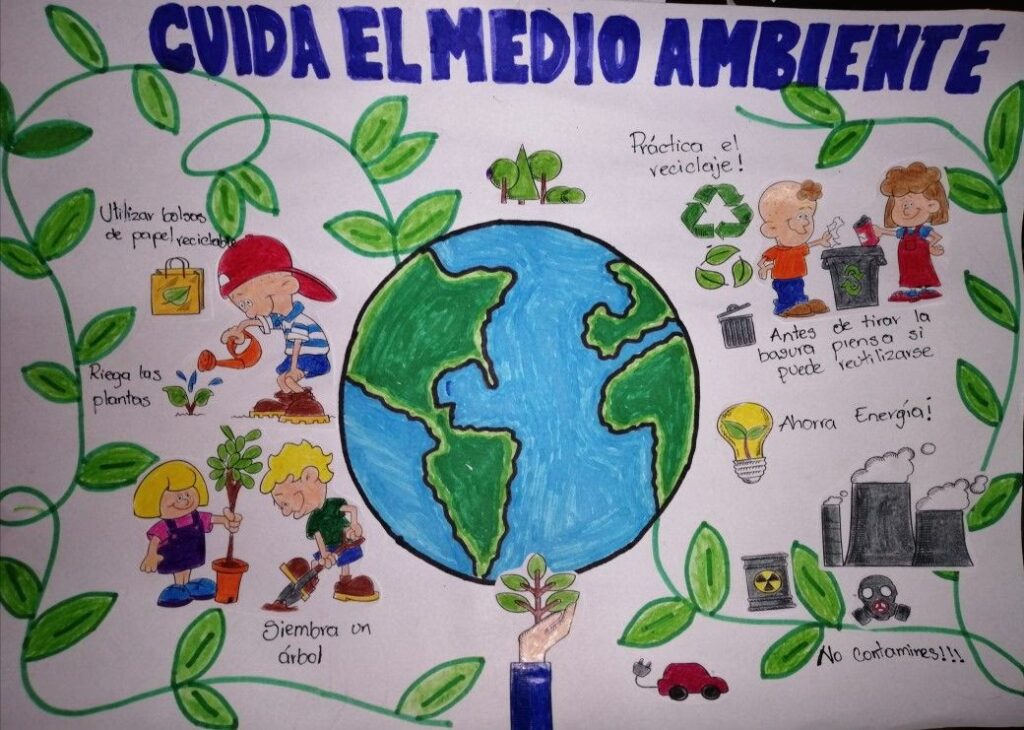 CUIDA EL MEDIO AMBIENTE
Práctica el
reciclaje!
Utilizar bolsas
de papel reciclable
Antes de tirar la
basura piensa si
puede reutilizarse
Riega las
plantas
Ahorra Energía!
Siembra un
árbol
No contamines!!!